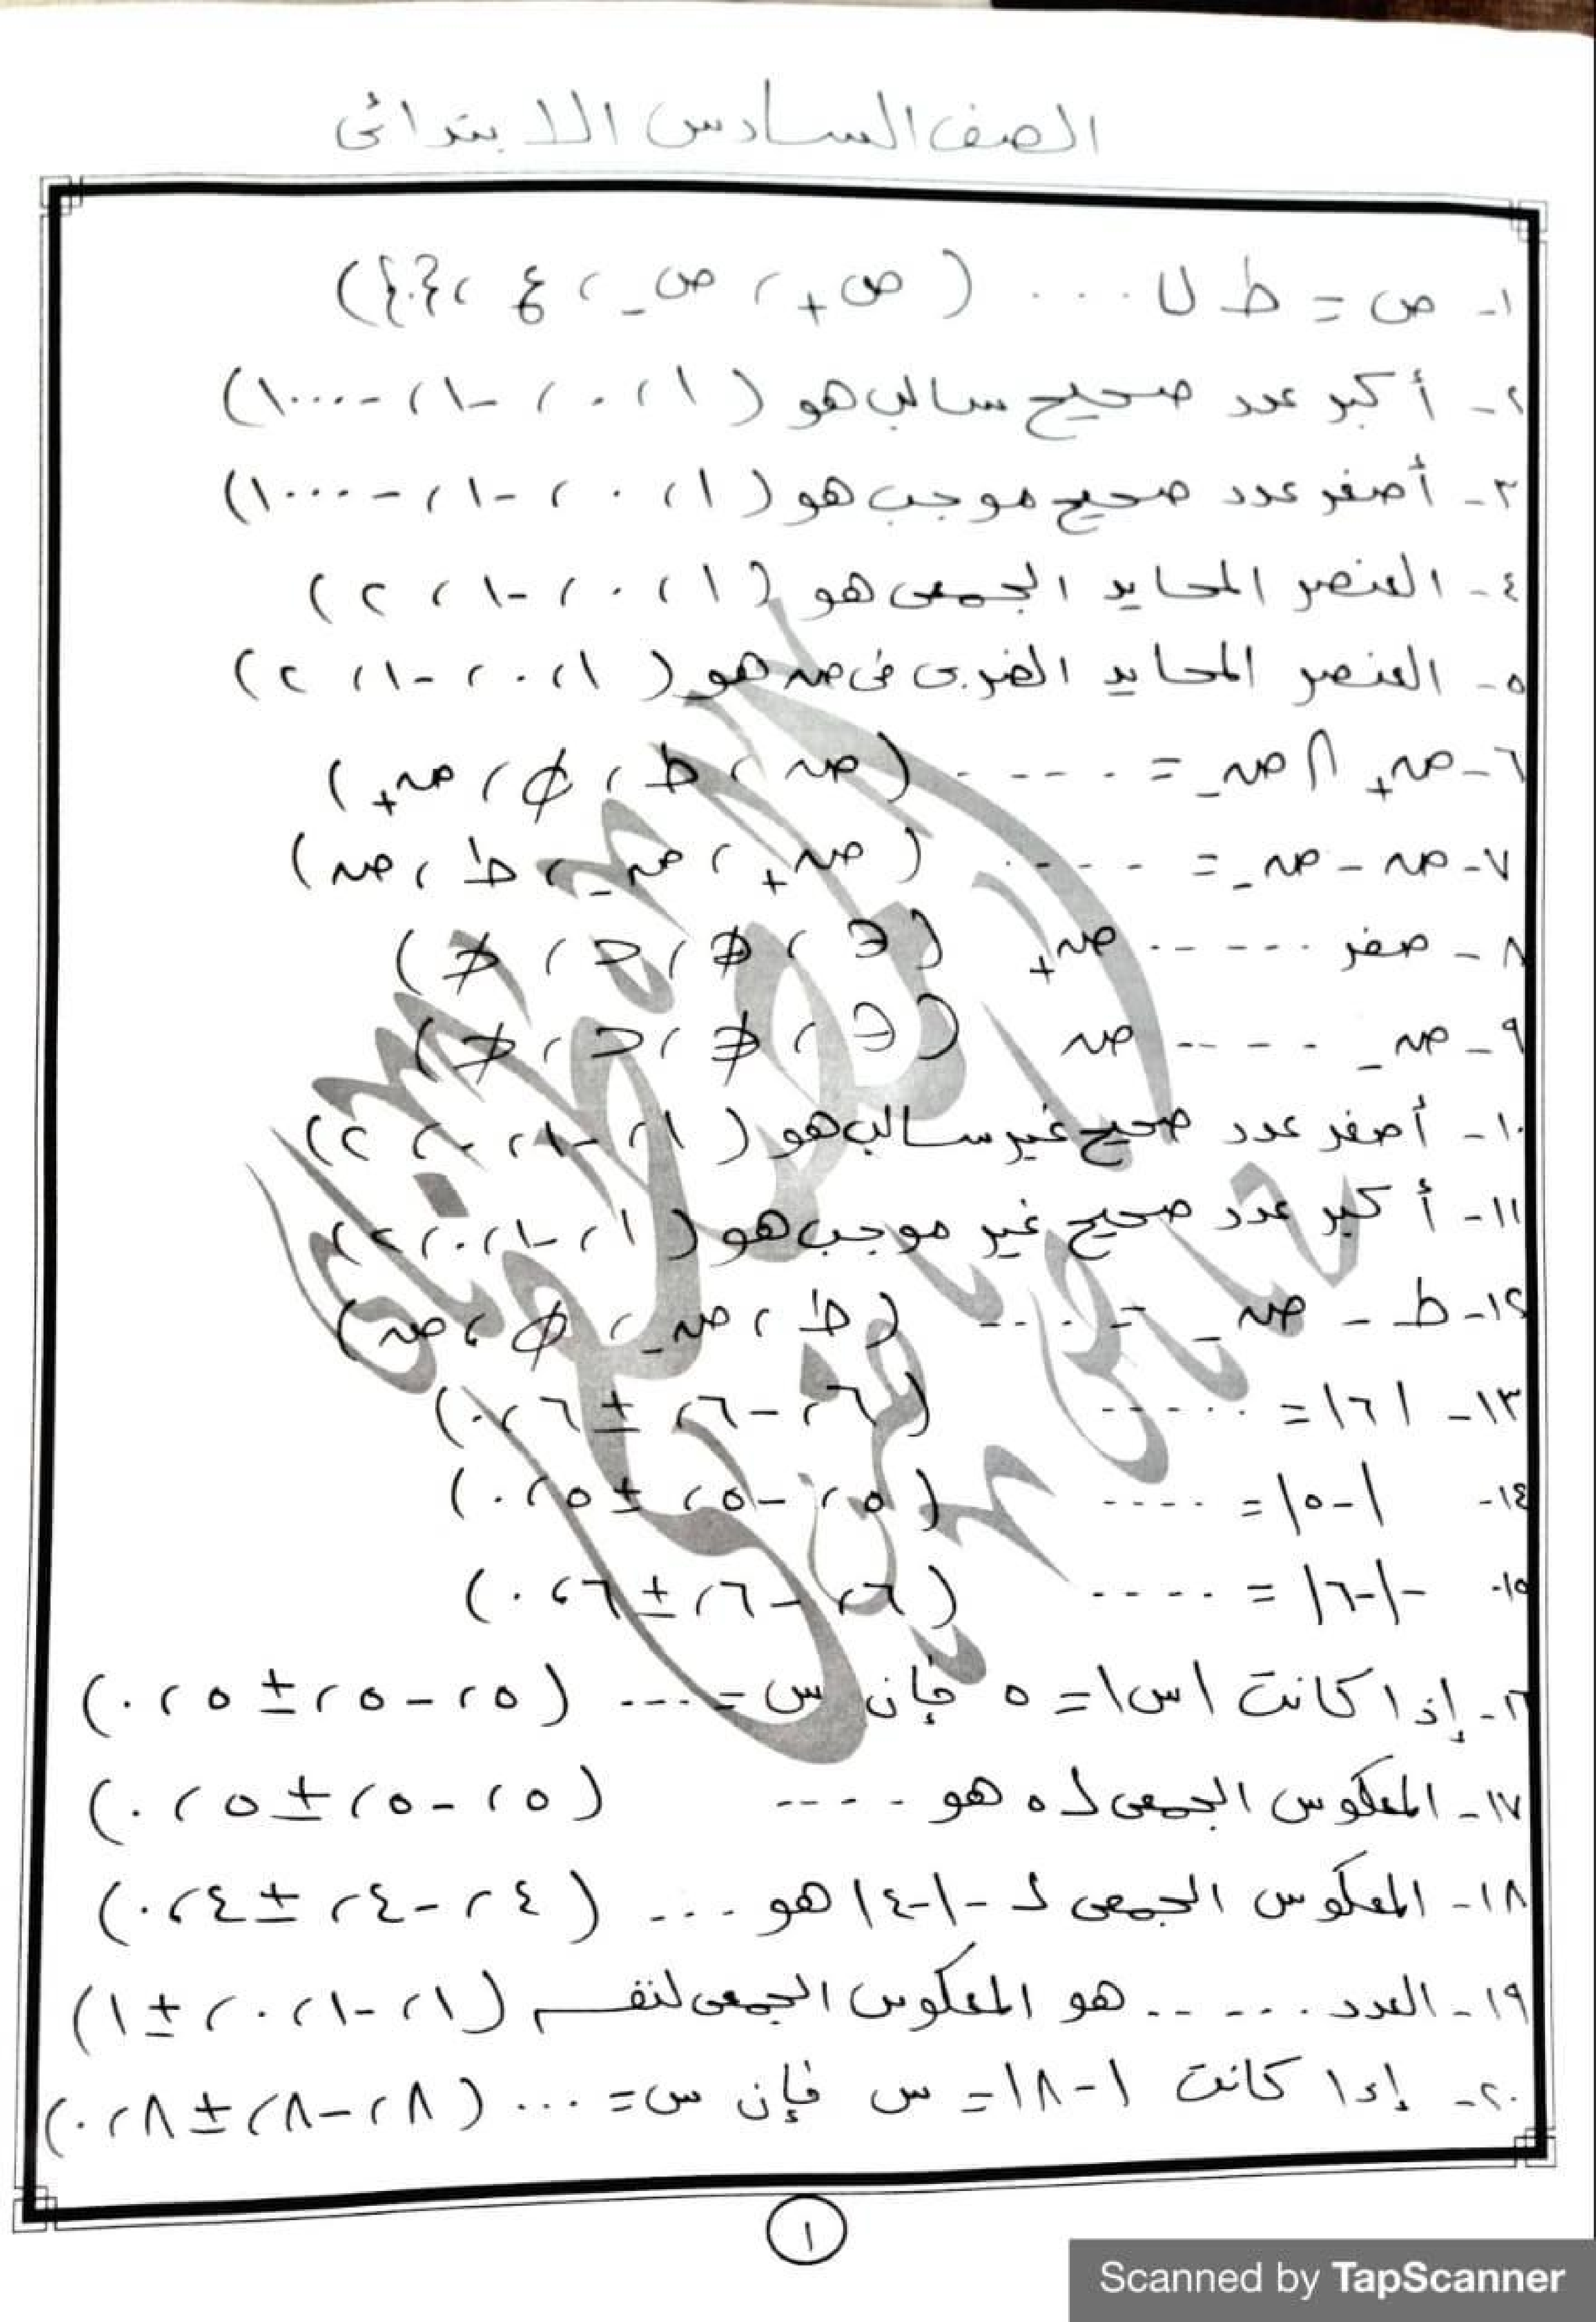 الصف السادس الابتدائى
١- ص = ط ∪ ... ( ص+ ، ص- ، ع ، {٠} )
٢- أكبر عدد صحيح سالب هو ( ١ ، ٠ ، -١ ، -١٠٠٠ )
٣- أصغر عدد صحيح موجب هو ( ١ ، ٠ ، -١ ، -١٠٠٠ )
٤- العنصر المحايد الجمعى هو ( ١ ، ٠ ، -١ ، ٢ )
٥- العنصر المحايد الضربى فى صہ هو ( ١ ، ٠ ، -١ ، ٢ )
٦- صہ+ ∩ صہ- = ..... ( صہ ، ط ، ∅ ، صہ+ )
٧- صہ - صہ- = ..... ( صہ+ ، صہ- ، ط ، صہ )
٨- صفر ...... صہ+ ( ∈ ، ∉ ، ⊂ ، ⊄ )
٩- صہ- ..... صہ ( ∈ ، ∉ ، ⊂ ، ⊄ )
١٠- أصغر عدد صحيح غير سالب هو ( ١ ، -١ ، ٠ ، ٢ )
١١- أكبر عدد صحيح غير موجب هو ( ١ ، -١ ، ٠ ، ٢ )
١٢- ط - صہ- = ..... ( ط ، صہ- ، ∅ ، صہ )
١٣- |٦| = ...... ( ٦ ، -٦ ، ±٦ ، ٠ )
١٤- |-٥| = ..... ( ٥ ، -٥ ، ±٥ ، ٠ )
١٥- -|-٦| = ..... ( ٦ ، -٦ ، ±٦ ، ٠ )
١٦- إذا كانت |س| = ٥ فإن س = .... ( ٥ ، -٥ ، ±٥ ، ٠ )
١٧- المعكوس الجمعى لـ ٥ هو ..... ( ٥ ، -٥ ، ±٥ ، ٠ )
١٨- المعكوس الجمعى لـ -|-٤| هو .... ( ٤ ، -٤ ، ±٤ ، ٠ )
١٩- العدد ...... هو المعكوس الجمعى لنفسه ( ١ ، -١ ، ٠ ، ±١ )
٢٠- إذا كانت |-٨| = س فإن س = ... ( ٨ ، -٨ ، ±٨ ، ٠ )
١
Scanned by TapScanner